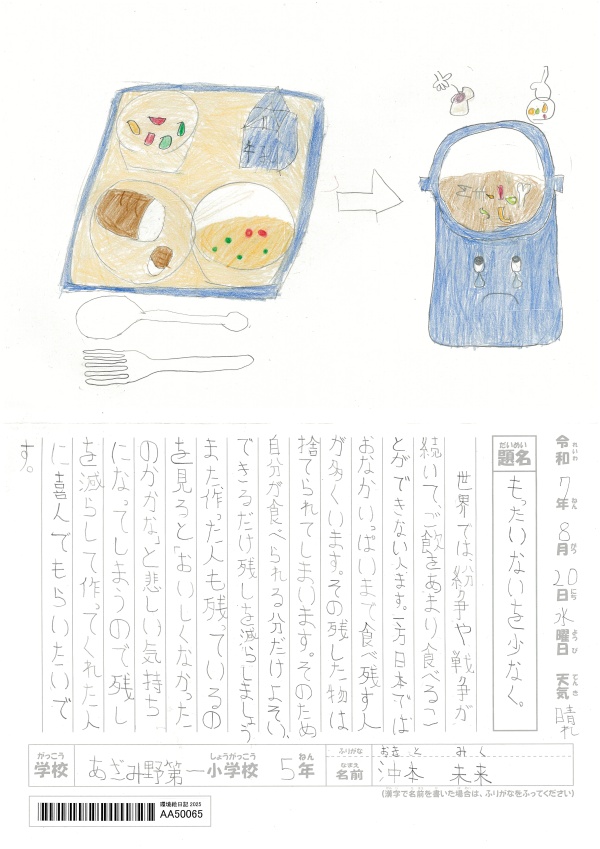 牛乳
令和7年8月20日水曜日 天気 晴れ
れいわ ねん がつ にち ようび てんき
だいめい
題名 もったいないを少なく。
世界では、紛争や戦争が
続いて、ご飯をあまり食べるこ
とができない人ます。一方日本では
おなかいっぱいまで食べ残す人
が多くいます。その残した物は
捨てられてしまいます。そのため
自分が食べられる分だけよそい、
できるだけ残しを減らしましょう
また作った人も残っているの
を見ると「おいしくなかった
のかな」と悲しい気持ち
になってしまうので残し
を減らして作ってくれた人
に喜んでもらいたいで
す。
がっこう しょうがっこう ねん ふりがな おき と み く
学校 あざみ野第一小学校 5年 なまえ 名前 沖本 未来
(漢字で名前を書いた場合は、ふりがなをふってください)
環境絵日記 2025
AA50065